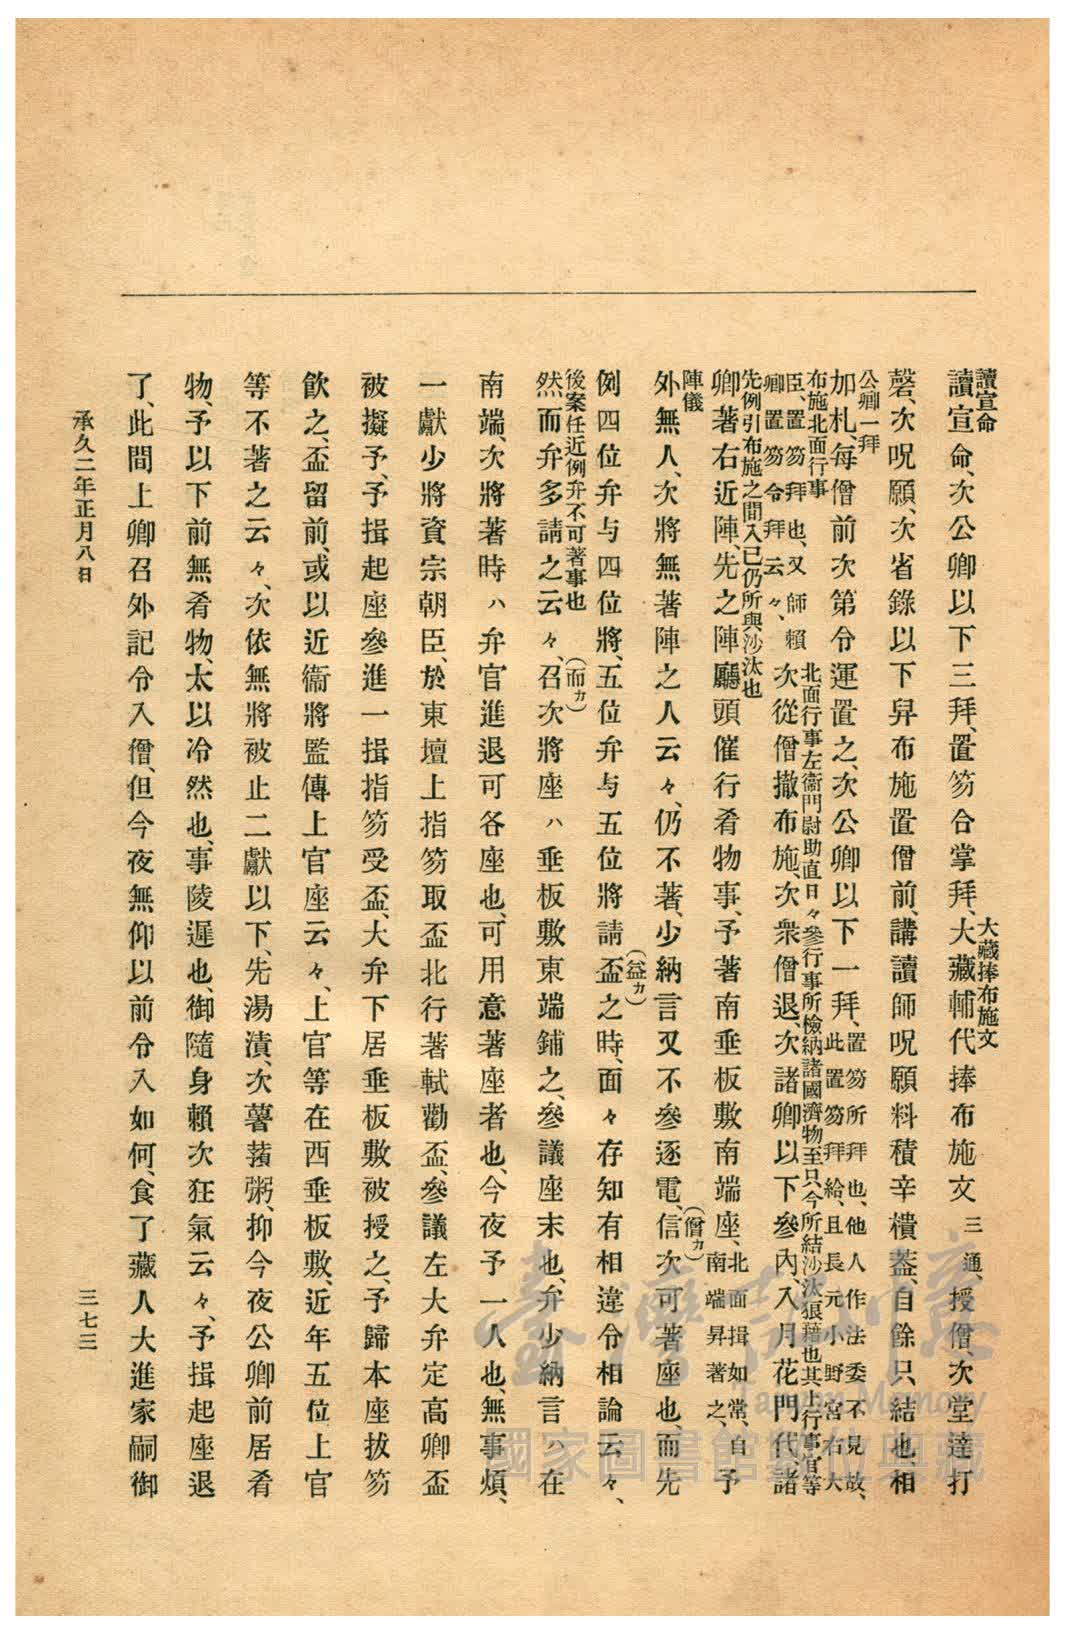 讀宣命
大藏捧布施文
讀宣命、次公卿以下三拜、置笏合掌拜、大藏輔代捧布施文三通、授僧、次堂達打
磬、次呪願、次省錄以下舁布施置僧前、講讀師呪願料積辛櫃蓋、自餘只結也、相
公卿一拜
加札、每僧前次第令運置之、次公卿以下一拜、置笏所拜也、他人作法委不見故、
此置笏拜給、且長元小野宮右大
布施北面行事
北面行事左衞門尉助直日々參行事所檢納諸國濟物至只今所結沙汰狼藉也其上行事官等
臣、置笏拜也、又師賴
卿置笏令拜云々、
次從僧撤布施、次衆僧退、次諸卿以下參內、入月花門代諸
先例引布施之間入已仍所與沙汰也
卿著右近陣、先之陣廳頭催行肴物事、予著南垂板敷南端座、北面揖如常、自予
南端昇著之、
陣儀
(僧カ)
外無人、次將無著陣之人云々、仍不著、少納言又不參逐電、信次可著座也、而先
(益カ)
例四位弁与四位將、五位弁与五位將請盃之時、面々存知有相違令相論云々、
後案任近例弁不可著事也
(而カ)
然而弁多請之云々、召次將座ハ垂板敷東端鋪之、參議座末也、弁少納言ハ在
南端、次將著時ハ弁官進退可各座也、可用意著座者也、今夜予一人也、無事煩、
一獻少將資宗朝臣、於東壇上指笏取盃北行著軾勸盃、參議左大弁定高卿盃
被擬予、予揖起座參進一揖指笏受盃、大弁下居垂板敷被授之、予歸本座拔笏
飮之、盃留前、或以近衞將監傳上官座云々、上官等在西垂板敷、近年五位上官
等不著之云々、次依無將被止二獻以下、先湯漬、次薯蕷粥、抑今夜公卿前居肴
物、予以下前無肴物、太以冷然也、事陵遲也、御隨身賴次狂氣云々、予揖起座退
了、此間上卿召外記令入僧、但今夜無仰以前令入如何、食了藏人大進家嗣御
承久二年正月八日
三七三
臺灣記憶
Taiwan Memory
國家圖書館數位典藏